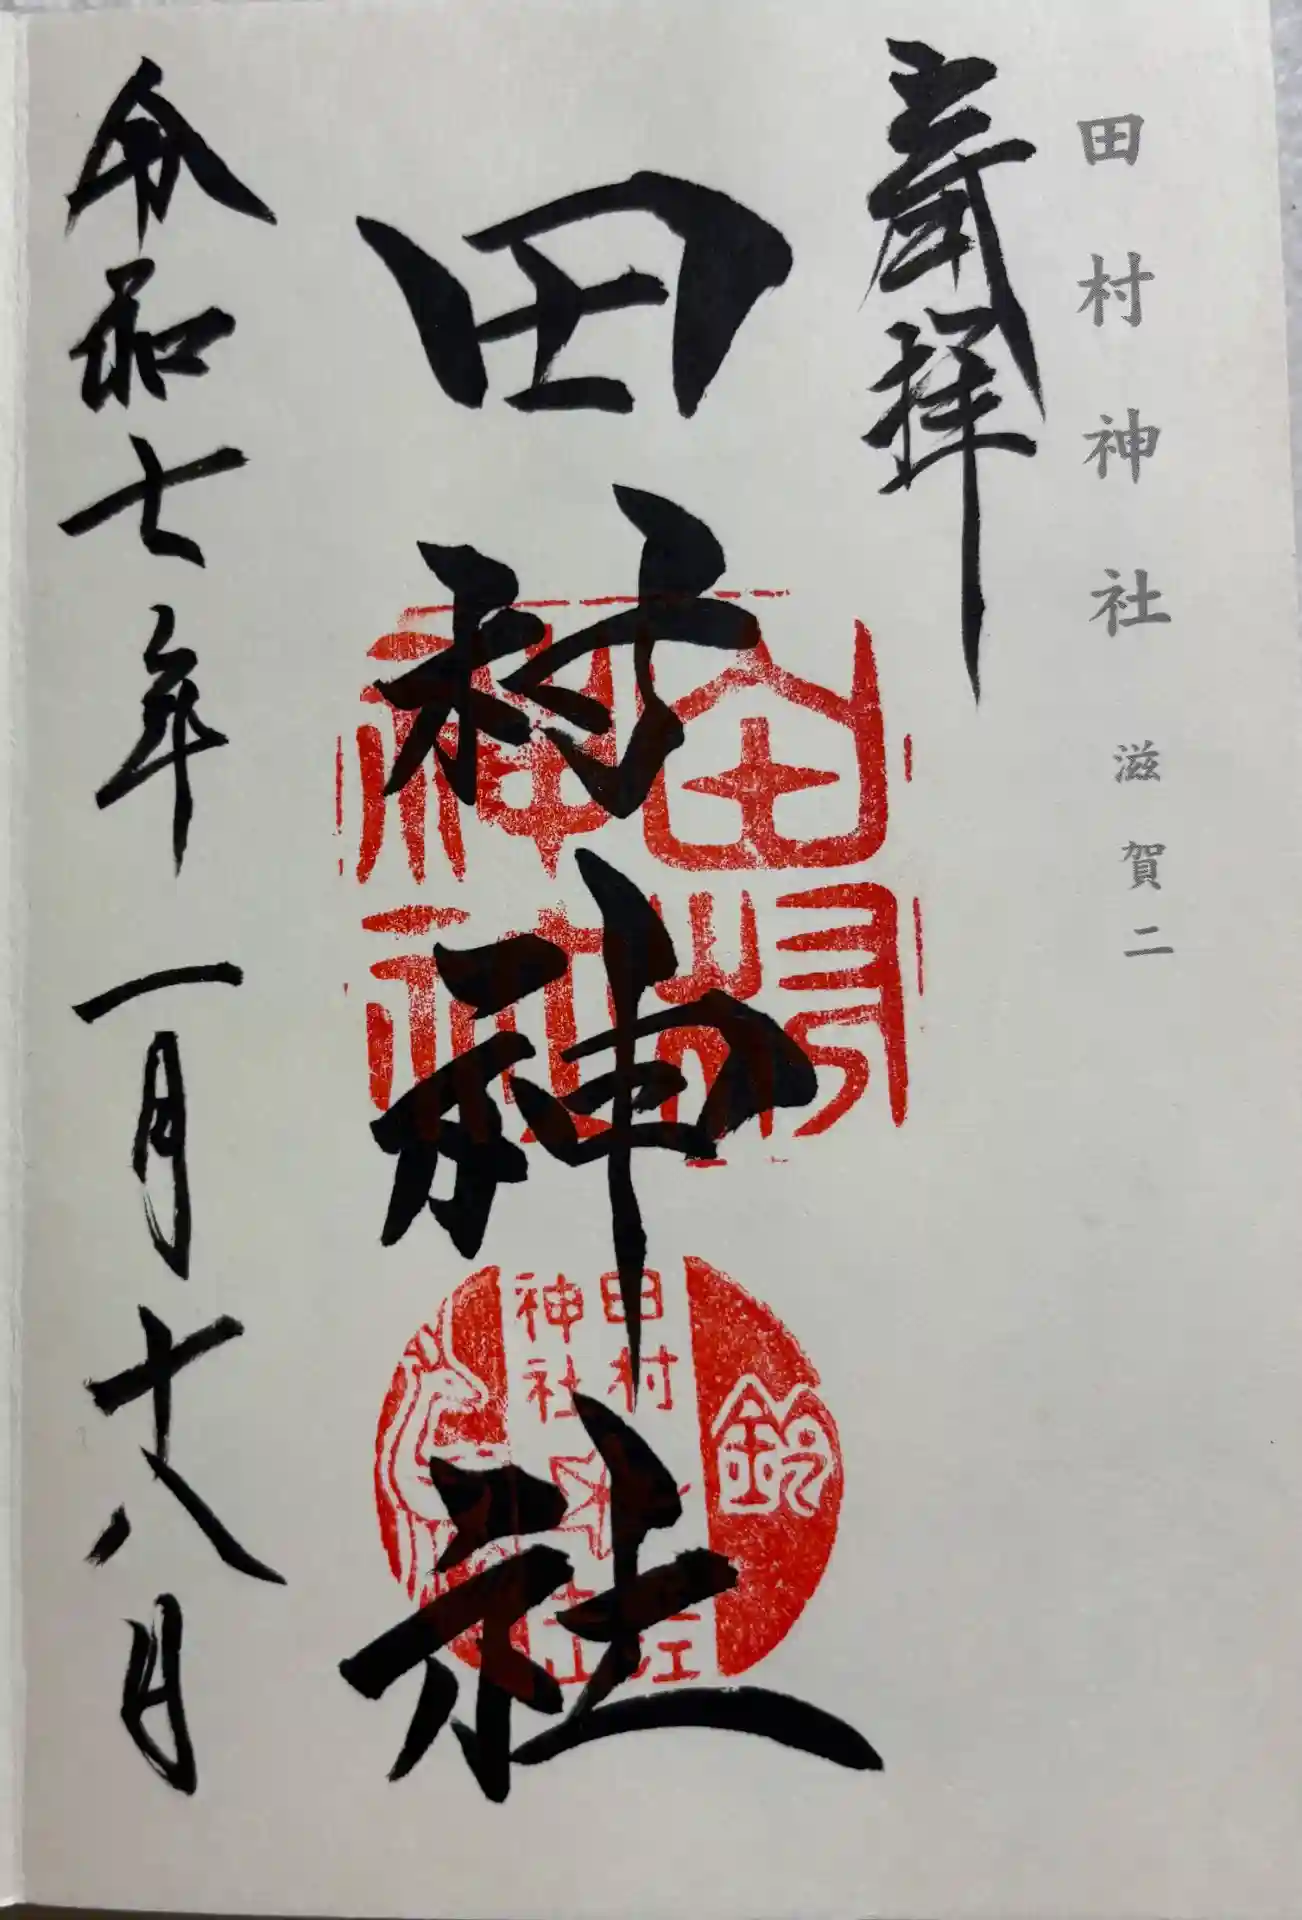 田村神社 滋賀二
奉拝
田村神社
令和七年一月十八日
田村神社
鈴
田村
神社